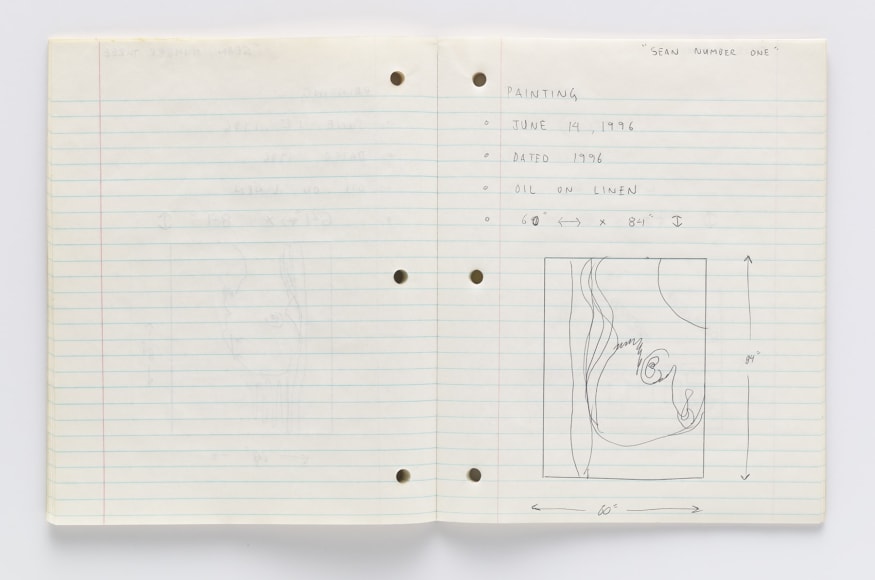 "SEAN NUMBER ONE"
PAINTING
° JUNE 14, 1996
° DATED 1996
° OIL ON LINEN
° 60" ↔ x 84" ↕
84"
60"